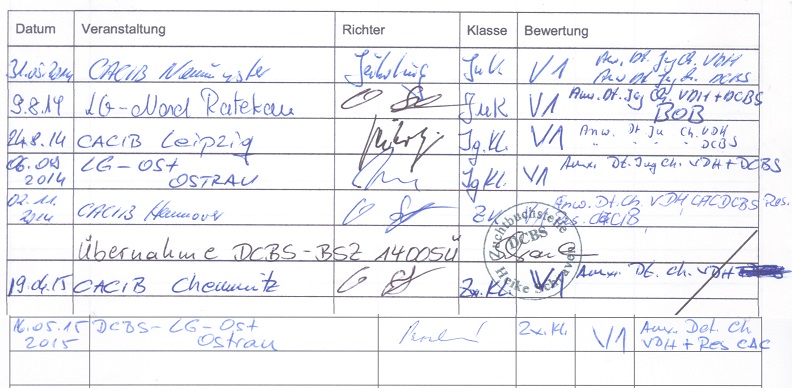 Datum Veranstaltung Richter Klasse Bewertung
31.05.2014 CACIB Neumünster JuK. V1 Anw. Dt. Jg Ch. VDH
Anw. Dt. Jg. Ch. DCBS
9.8.14 LG-Nord Ratekau JuK V1 Anw. Dt. Jg Ch. VDH+DCBS
BOB
24.8.14 CACIB Leipzig Jg.Kl. V1 Anw. Dt Ju Ch. VDH
" " " DCBS
06.09 LG-Ost Jg.Kl. V1 Anw. Dt. Jug Ch. VDH + DCBS
2014 OSTRAU
02.11. CACIB Hannover Anw. Dt. Ch. VDH, CAC DCBS Res.
2014 Res. CACIB
Zuchtbuchstelle
DCBS
Heike
Übernahme DCBS-BSZ 14005Ü
19.04.15 CACIB Chemnitz Zw. Kl. V1 Anw. Dt. Ch. VDH
16.05.15 DCBS-LG-Ost Zw. Kl. V1 Anw. Det. Ch
2015 Ostrau VDH + Res CAC